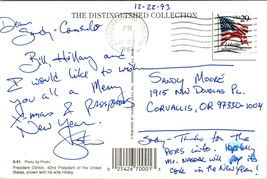 THE DISTINGUISHED COLLECTION
12-22-93
Dear
Sandy - Consuelo
Bill, Hillary and
I would like to wish
you all a Merry
Xmas & PROSPEROUS
New Year!
USA 29
SANDY MOORE
1915 NW DOUGLAS PL.
CORVALLIS, OR 97330-1004
Sandy - Thanks for the
PERS info.
Mr. NASDAK will pay its
in the NEW YEAR!
B-91 Photo by Photri
President Clinton, 42nd President of the United States,
shown with his wife Hillary.
8 25426 70009 3